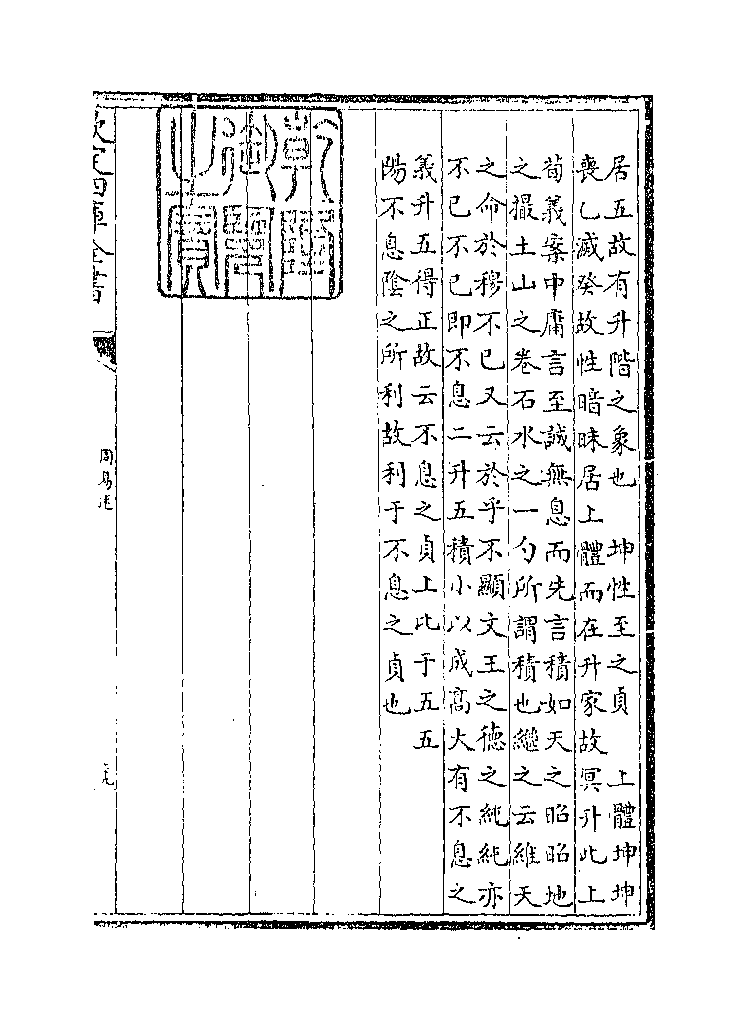 居五故有升階之象也　坤性至之貞　上體坤坤
喪乙滅癸故性暗昧居上體而在升家故冥升此上
荀義案中庸言至誠無息而先言積如天之昭昭地
之撮土山之卷石水之一勺所謂積也繼之云維天
之命於穆不已又云於乎不顯文王之德之純純亦
不已不已即不息二升五積小以成高大有不息之
義升五得正故云不息之貞上比于五五
陽不息陰之所利故利于不息之貞也
乾隆
御覽
之寶
欽定四庫全書
周易述